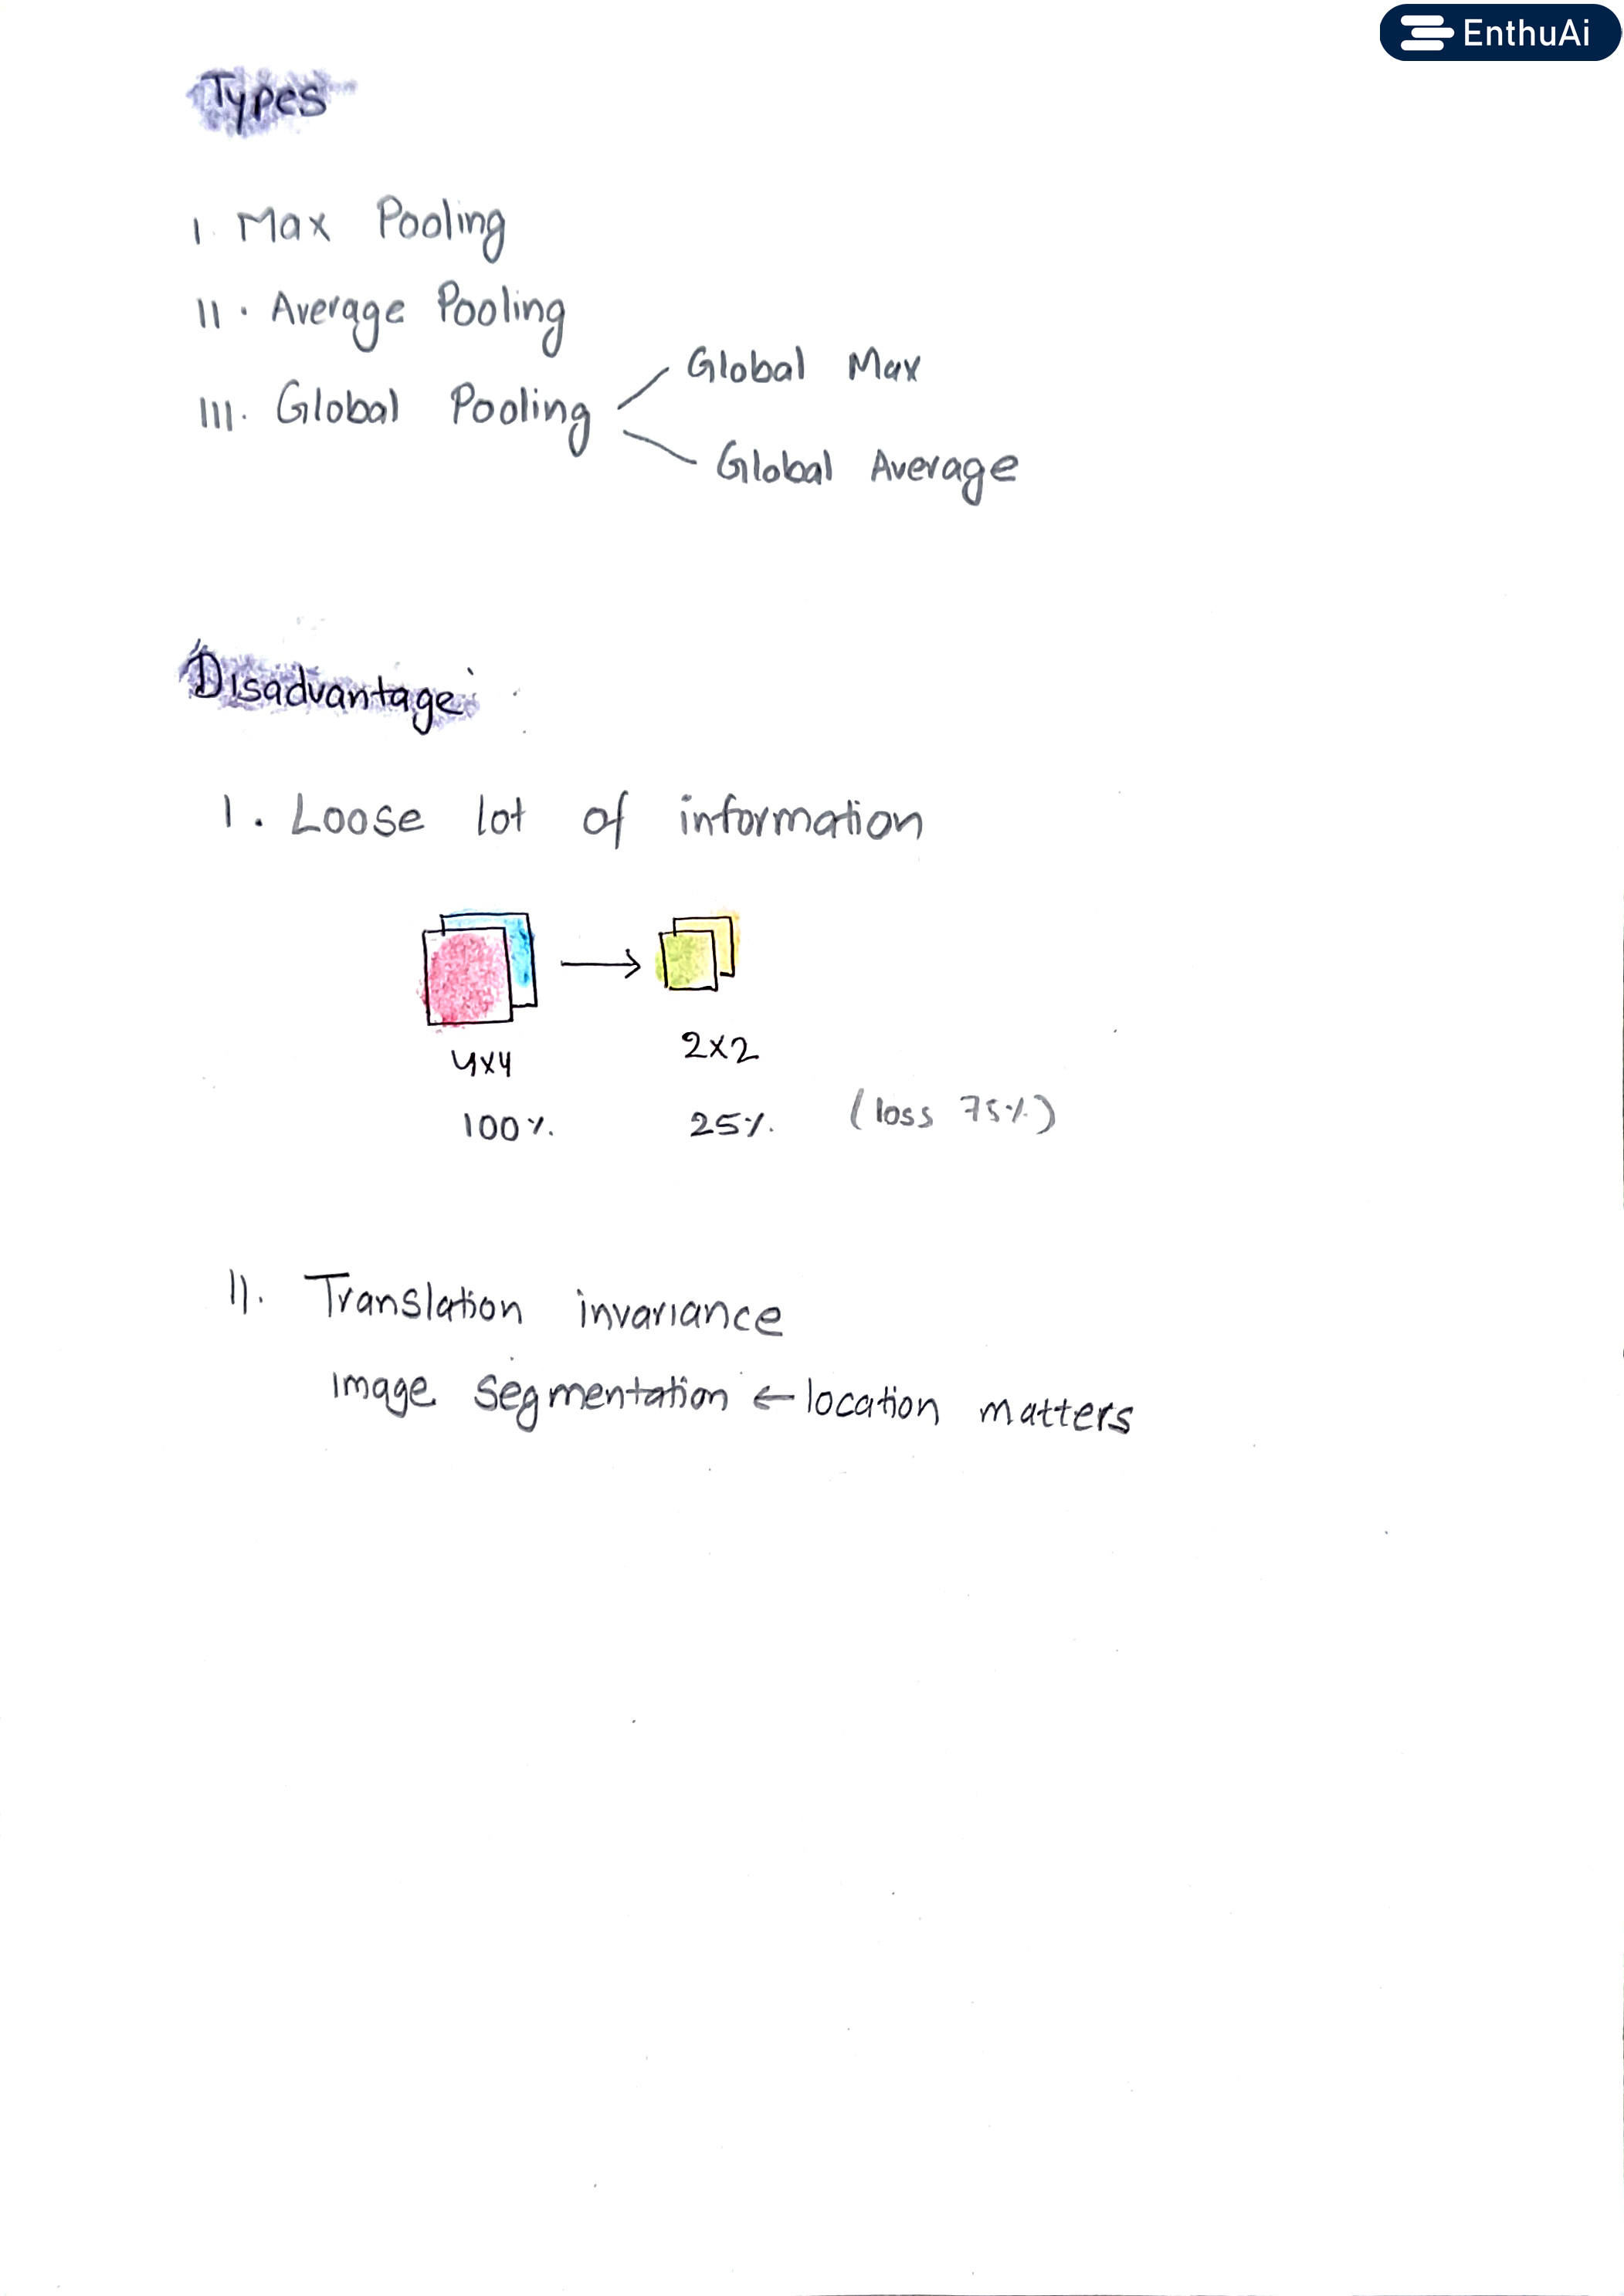 EnthuAi
Types
I. Max Pooling
II. Average Pooling
Global Max
III. Global Pooling
Global Average
Disadvantage
I. Loose lot of information
4x4
2x2
100%
25%
(loss 75%)
II. Translation invariance
Image segmentation ← location matters